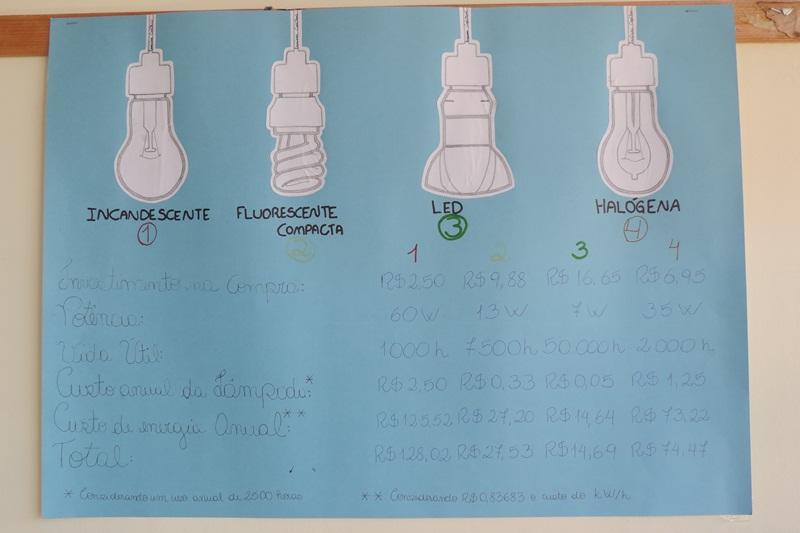 INCANDESCENTE FLUORESCENTE COMPACTA LED HALÓGENA
1 2 3 4
1 2 3 4
Investimento na Compra: R$2,50 R$9,88 R$16,65 R$6,95
Potência: 60W 13W 7W 35W
Vida Útil: 1000h 7500h 50.000h 2000h
Custo anual da Lâmpada*: R$2,50 R$0,33 R$0,05 R$1,25
Custo de energia Anual**: R$125,52 R$27,20 R$14,64 R$73,22
Total: R$128,02 R$27,53 R$14,69 R$74,47
* Considerando um uso anual de 2500 horas ** Considerando R$0,83683 o custo do kW/h